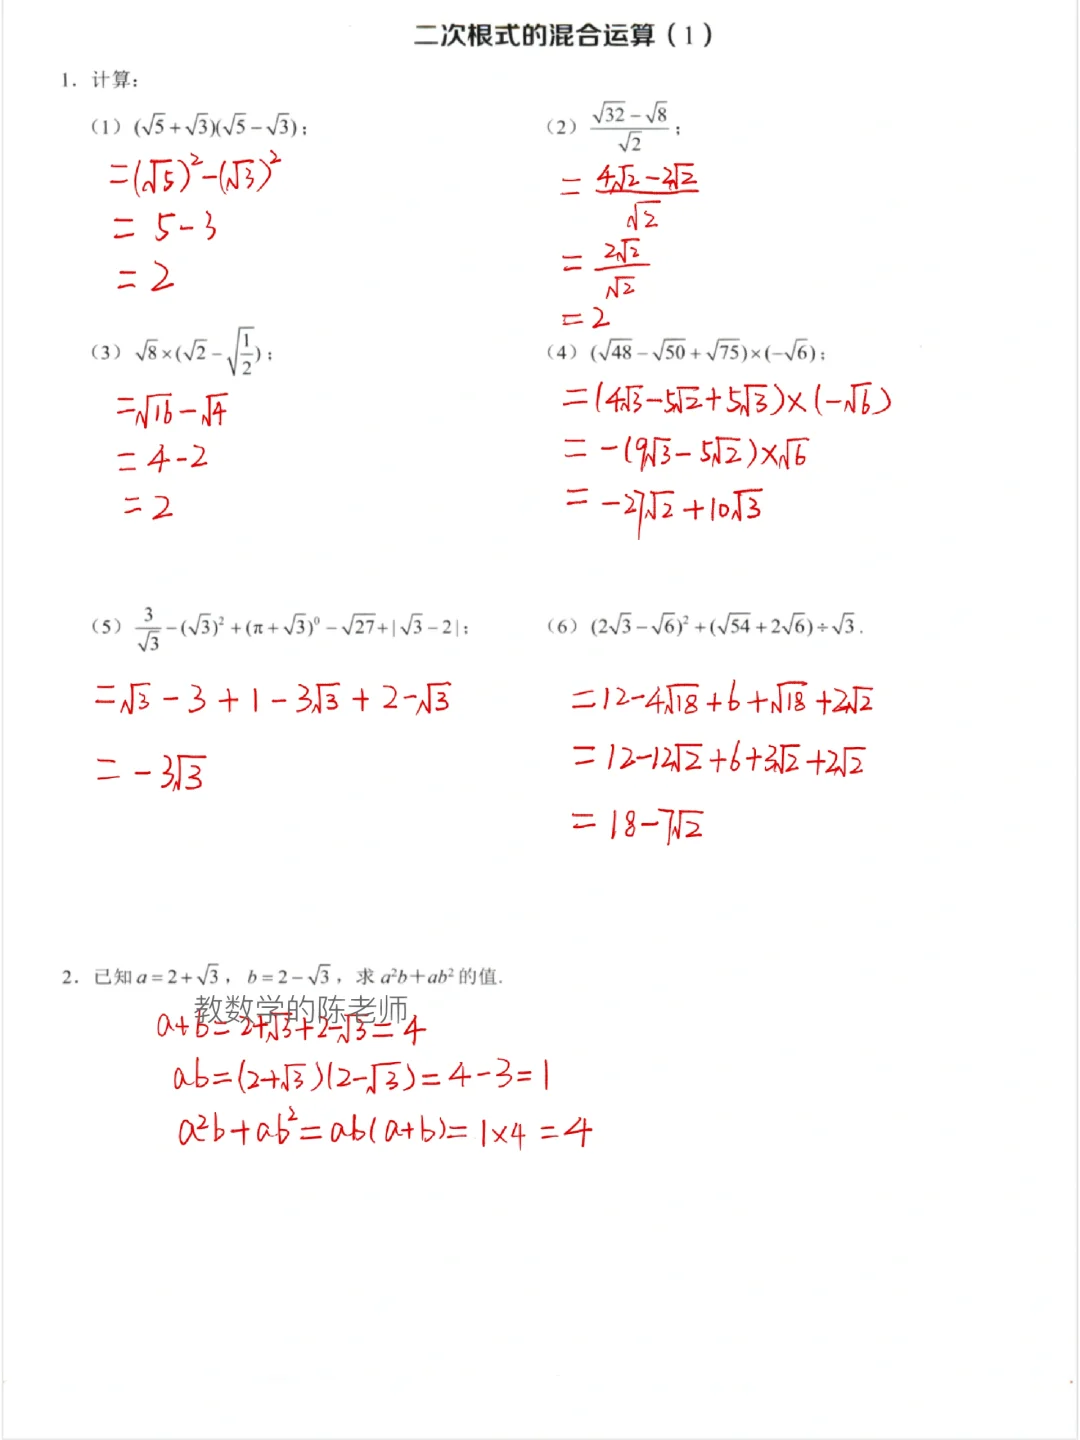 二次根式的混合运算（1）
1．计算：
（1）(√5+√3)(√5−√3)；
=(√5)²-(√3)²
= 5-3
= 2
（2）(√32−√8)/√2；
= (4√2-2√2)/√2
= 2√2/√2
=2
（3）√8×(√2−√(1/2))；
=√16-√4
= 4-2
= 2
（4）(√48−√50+√75)×(−√6)；
=(4√3-5√2+5√3)×(-√6)
= -(9√3-5√2)×√6
= -27√2+10√3
（5）3/√3−(√3)²+(π+√3)⁰−√27+|√3−2|；
=√3-3+1-3√3+2-√3
= -3√3
（6）(2√3−√6)²+(√54+2√6)÷√3．
=12-4√18+6+√18+2√2
= 12-12√2+6+3√2+2√2
= 18-7√2
2．已知a=2+√3，b=2−√3，求a²b+ab²的值．
教数学的陈老师
a+b=2+√3+2-√3=4
ab=(2+√3)(2-√3)=4-3=1
a²b+ab²=ab(a+b)=1×4=4